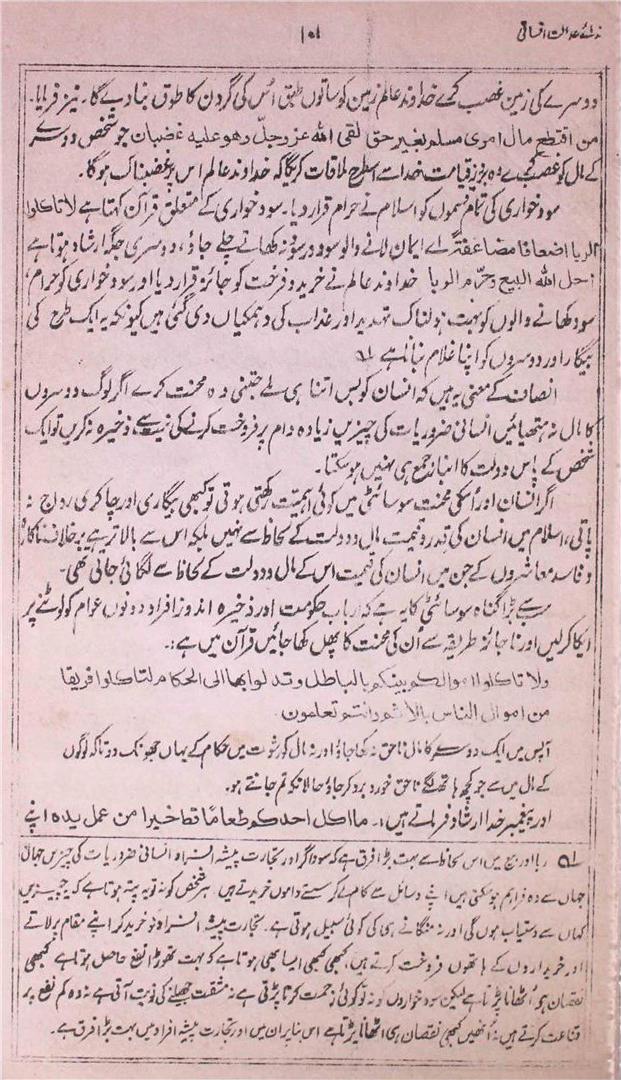 ندائے عدالت انسانی
۱۰۱
دوسرے کی زمین غصب کرے خداوند عالم زمین کو ساتوں طبق اس کی گردن کا طوق بنا دے گا۔ نیز فرمایا۔
من اقتطع مال امرئ مسلم بغیر حق لقی اللہ عز وجل وھو علیہ غضبان جو شخص دوسرے
کے مال کو غصب کرے وہ بروز قیامت خدا سے اسطرح ملاقات کریگا کہ خداوند عالم اس پر غضبناک ہوگا۔
سود خواری کی تمام قسموں کو اسلام نے حرام قرار دیا۔ سود خواری کے متعلق قرآن کہتا ہے لا تاکلوا
الربا اضعافا مضاعفۃ اے ایمان لانے والو سود در سود نہ کھاتے چلے جاؤ، دوسری جگہ ارشاد ہوتا ہے
احل اللہ البیع وحرّم الربا خداوند عالم نے خرید و فروخت کو جائز قرار دیا اور سود خواری کو حرام،
سود کھانے والوں کو بہت ہولناک تہدید اور عذاب کی دھمکیاں دی گئی ہیں کیونکہ یہ ایک طرح کی
بیگار اور دوسروں کو اپنا غلام بنانا ہے ؎۱
انصاف کے معنی یہ ہیں کہ انسان کو بس اتنا ہی ملے جتنی وہ محنت کرے اگر لوگ دوسروں
کا مال نہ ہتھیائیں انسانی ضروریات کی چیزیں زیادہ دام پر فروخت کرنے کی نیت سے ذخیرہ نہ کریں تو ایک
شخص کے پاس دولت کا انبار جمع ہی نہیں ہو سکتا۔
اگر انسان اور اسکی محنت سوسائٹی میں کوئی اہمیت رکھتی ہوتی تو کبھی بیگاری اور چاکری رواج نہ
پاتی، اسلام میں انسان کی قدر و قیمت مال و دولت کے لحاظ سے نہیں بلکہ اس سے بالاتر ہے برخلاف ناکارہ
و فاسد معاشروں کے جن میں انسان کی قیمت اس کے مال و دولت کے لحاظ سے لگائی جاتی تھی۔
سب سے بڑا گناہ سوسائٹی کا یہ ہے کہ ارباب حکومت اور ذخیرہ اندوز افراد دونوں عوام کو لوٹنے پر
ایکا کر لیں اور ناجائز طریقہ سے اُن کی محنت کا پھل کھا جائیں قرآن میں ہے:۔
ولا تاکلوا اموالکم بینکم بالباطل وتدلوا بھا الی الحکام لتاکلوا فریقا
من اموال الناس بالاثم وانتم تعلمون۔
آپس میں ایک دوسرے کا مال ناحق نہ کھا جاؤ اور نہ مال کو رشوت میں حکام کے یہاں جھونک دو تاکہ لوگوں
کے مال میں سے جو کچھ ہاتھ لگے ناحق خورد برد کر جاؤ حالانکہ تم جانتے ہو۔
اور پیغمبر خدا ارشاد فرماتے ہیں:۔ ما اکل احدکم طعامًا قط خیرا من عمل یدہ اپنے
؎۱ ربا اور بیع میں اس لحاظ سے بہت بڑا فرق ہے کہ سوداگر اور تجارت پیشہ افراد انسانی ضروریات کی چیزیں جہاں
جہاں سے وہ فراہم ہو سکتی ہیں اپنے وسائل سے کام لے کر سستے داموں خریدتے ہیں ہر شخص کو نہ تو یہ پتہ ہوتا ہے کہ یہ چیزیں
کہاں سے دستیاب ہوں گی اور نہ منگانے ہی کی کوئی سبیل ہوتی ہے۔ تجارت پیشہ افراد تو خرید کر اپنے مقام پر لاتے
اور خریداروں کے ہاتھوں فروخت کرتے ہیں، کبھی کبھی ایسا بھی ہوتا ہے کہ بہت تھوڑا نفع حاصل ہوتا ہے کبھی
نقصان ہی اُٹھانا پڑتا ہے لیکن سود خواروں کو نہ تو کوئی زحمت کرنا پڑتی ہے نہ مشقت جھیلنے کی نوبت آتی ہے نہ وہ کم نفع پر
قناعت کرتے ہیں نہ اُنھیں کبھی نقصان ہی اٹھانا پڑتا ہے اس بنا پر ان میں اور تجارت پیشہ افراد میں بہت بڑا فرق ہے۔